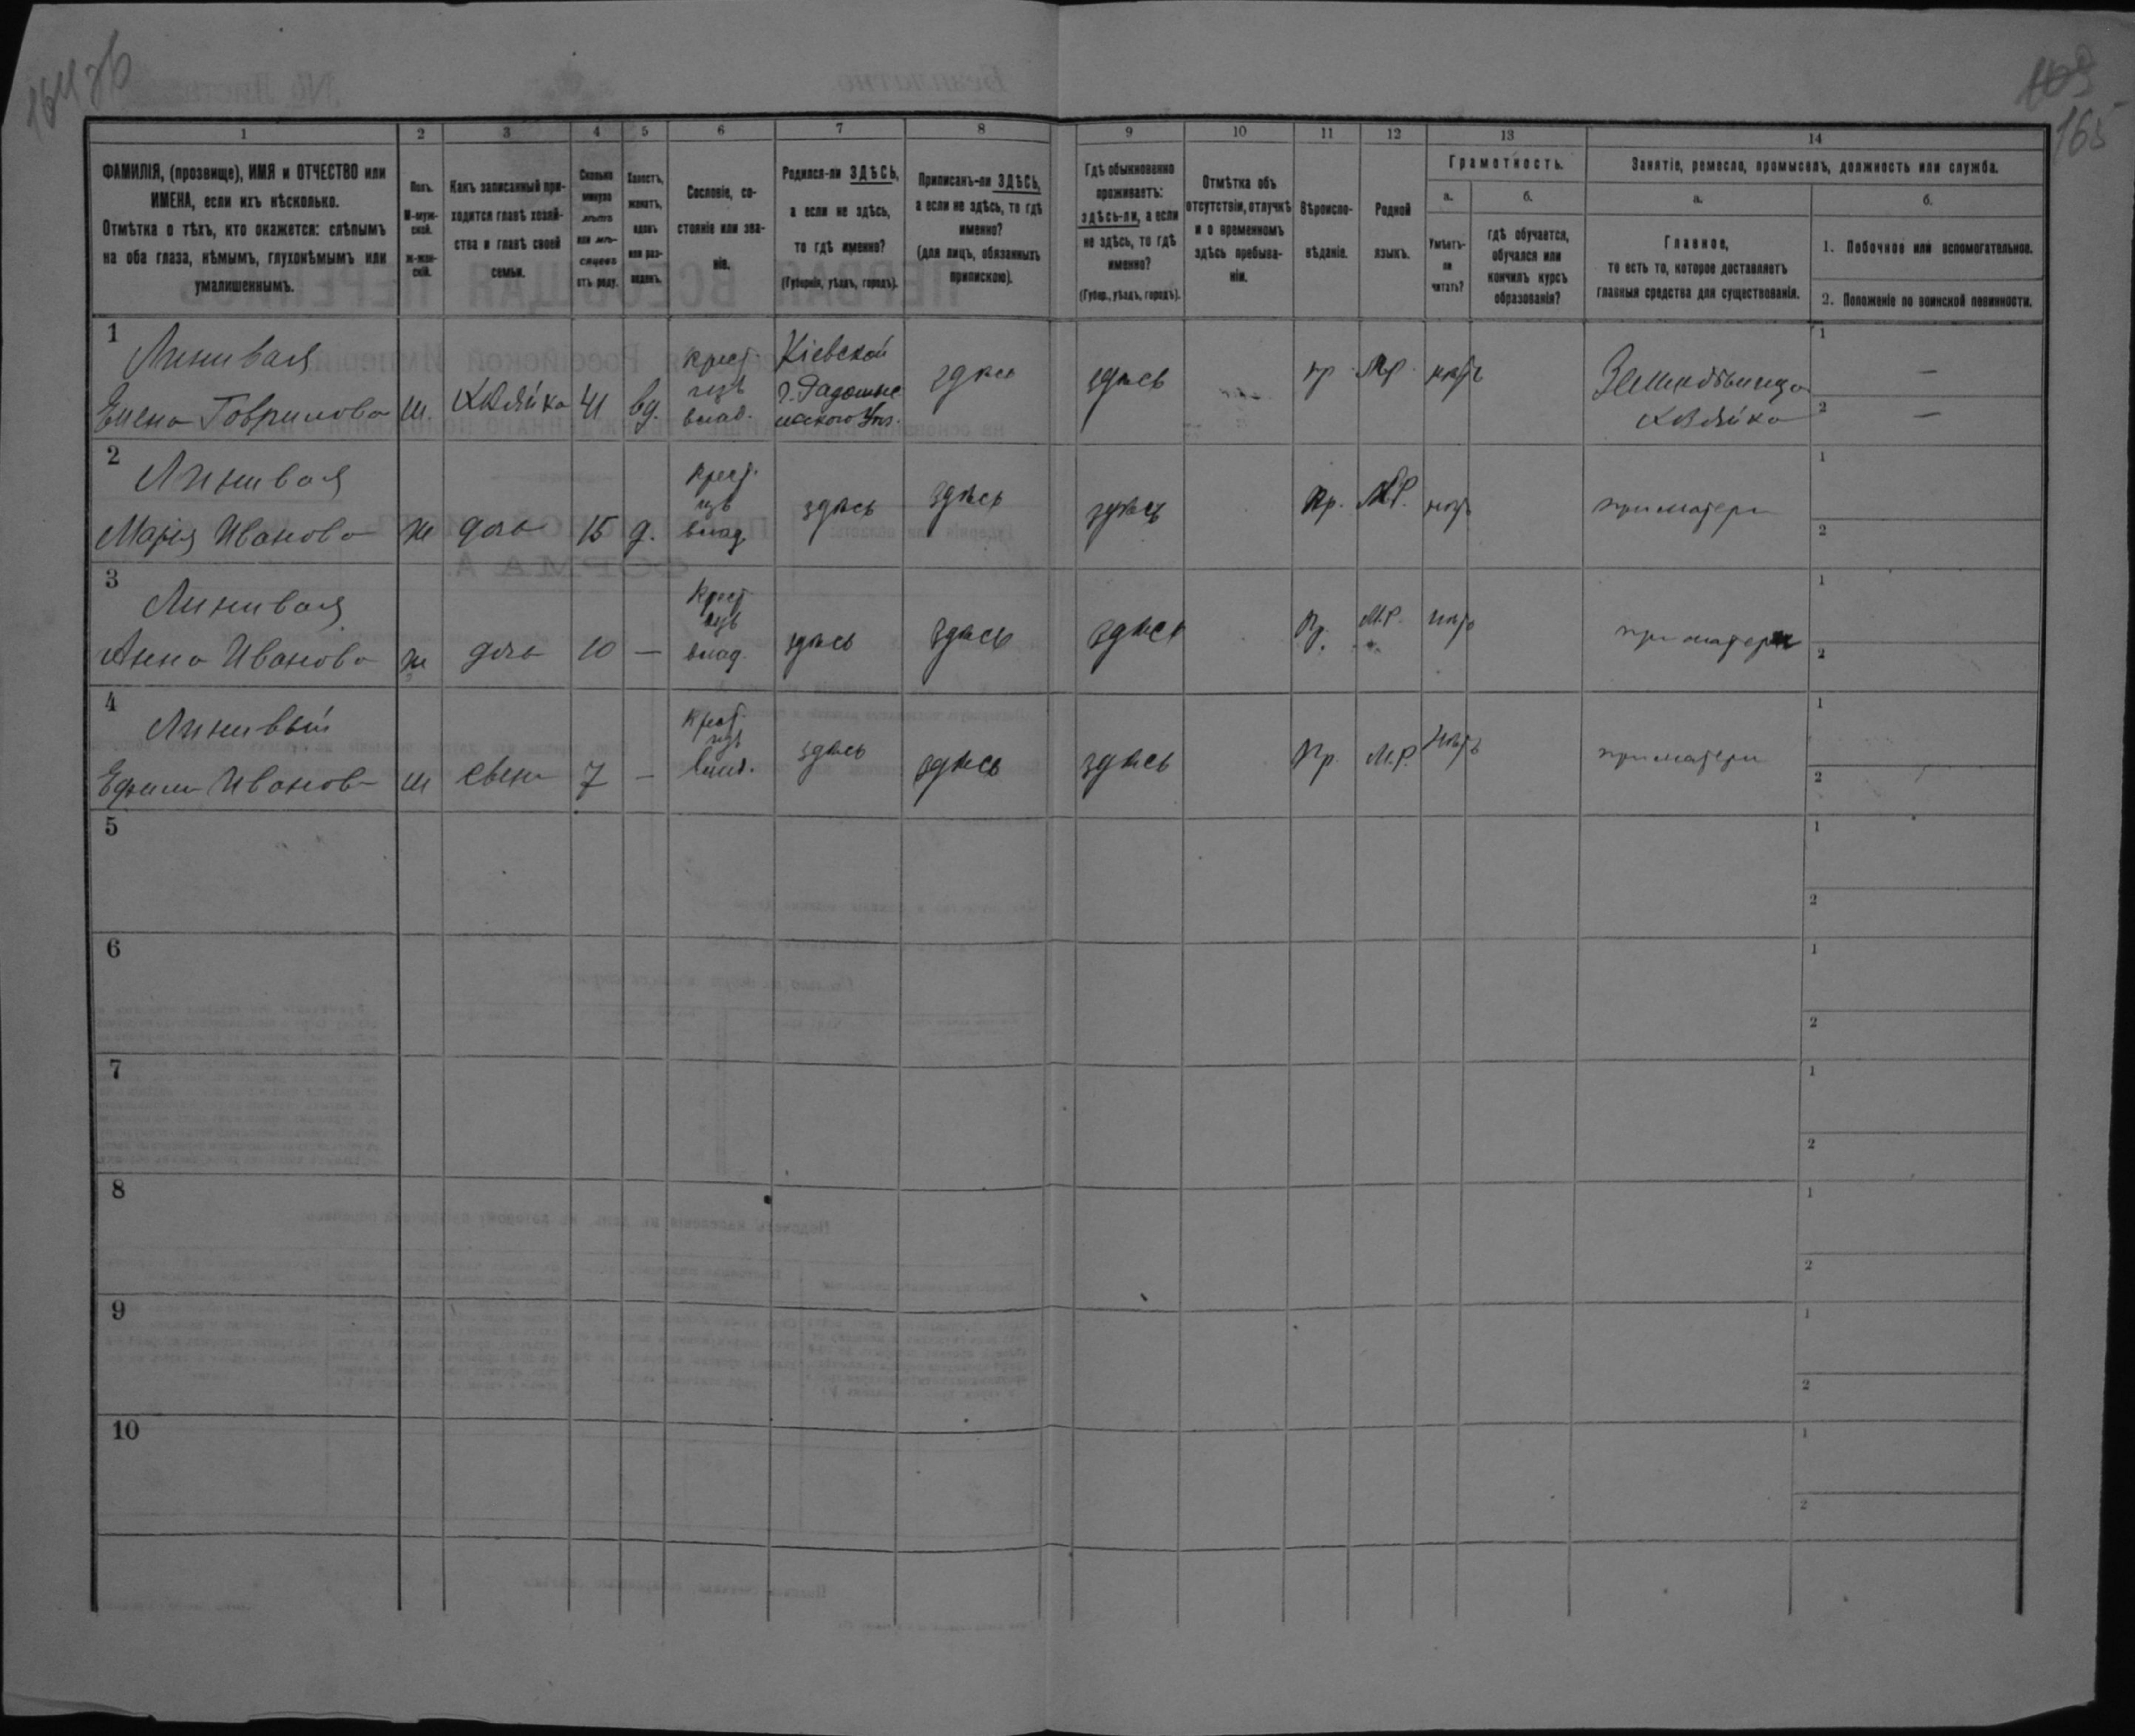 164 об
165
1 2 3 4 5 6 7 8 9 10 11 12 13 14
ФАМИЛІЯ, (прозвище), ИМЯ и ОТЧЕСТВО или
ИМЕНА, если ихъ нѣсколько.
Отмѣтка о тѣхъ, кто окажется: слѣпымъ
на оба глаза, нѣмымъ, глухонѣмымъ или
умалишеннымъ.
Полъ.
М-муж-
ской.
Ж-жен-
скій.
Какъ записанный при-
ходится главѣ хозяй-
ства и главѣ своей
семьи.
Сколько
минуло
лѣтъ
или мѣ-
сяцевъ
отъ роду.
Холостъ,
женатъ,
вдовъ
или раз-
веденъ.
Сословіе, со-
стояніе или зва-
ніе.
Родился-ли ЗДѢСЬ,
а если не здѣсь,
то гдѣ именно?
(Губернія, уѣздъ, городъ).
Приписанъ-ли ЗДѢСЬ,
а если не здѣсь, то гдѣ
именно?
(для лицъ, обязанныхъ
припискою).
Гдѣ обыкновенно
проживаетъ:
здѣсь-ли, а если
не здѣсь, то гдѣ
именно?
(Губер., уѣздъ, городъ).
Отмѣтка объ
отсутствіи, отлучкѣ
и о временномъ
здѣсь пребыва-
ніи.
Вѣроиспо-
вѣданіе.
Родной
языкъ.
Грамотность.
а.
Умѣетъ-
ли
читать?
б.
гдѣ обучается,
обучался или
кончилъ курсъ
образованія?
Занятіе, ремесло, промыселъ, должность или служба.
а.
Главное,
то есть то, которое доставляетъ
главныя средства для существованія.
б.
1. Побочное или вспомогательное.
2. Положеніе по воинской повинности.
1
Линивая
Елена Гаврилова
хозяйка
41
вд.
крест.
изъ
влад.
Кіевской
г. Радомысл
здѣсь
здѣсь
пр.
М.р.
нѣтъ
хозяйка
1 —
2 —
2
Линивая
Марія Иванова
ж
дочь
15
д.
крест.
изъ
влад.
здѣсь
здѣсь
здѣсь
Пр.
М.Р.
нѣтъ
при матери
1
2
3
Линивая
Анна Иванова
ж
дочь
10
—
крест
изъ
влад.
здѣсь
здѣсь
здѣсь
Пр.
М.Р.
нѣтъ
при матери
1
2
4
Линивый
Ефимъ Ивановъ
м
сынъ
7
—
крест.
изъ
влад.
здѣсь
здѣсь
здѣсь
Пр.
М.Р.
нѣтъ
при матери
1
2
5
1
2
6
1
2
7
1
2
8
1
2
9
1
2
10
1
2